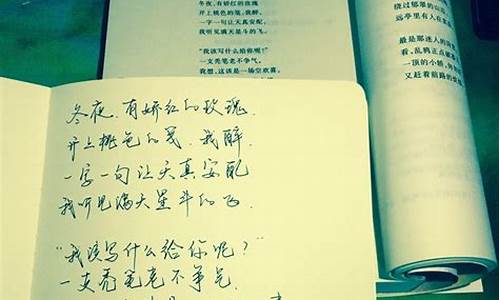 冬夜,有娇红的玫瑰
开上桃色的笺,我醉,
一字一句让天真安配,
我听见满天星斗的飞。
“我该写什么给你呢?”
一支秃笔老不争气。
我想,这该是一场空欢喜,
绕过郁翠的山
远亭里有人在
最是那迷人的
看,乱鸦正点
一顶的小轿,
又赶着前路的
冬夜,有娇红的玫瑰.
开上桃色的笺,我醉,
一字一句让天真安配
我听见满天星斗的飞.
“我该写什么给你呢?”
一支秃笔老不争气.